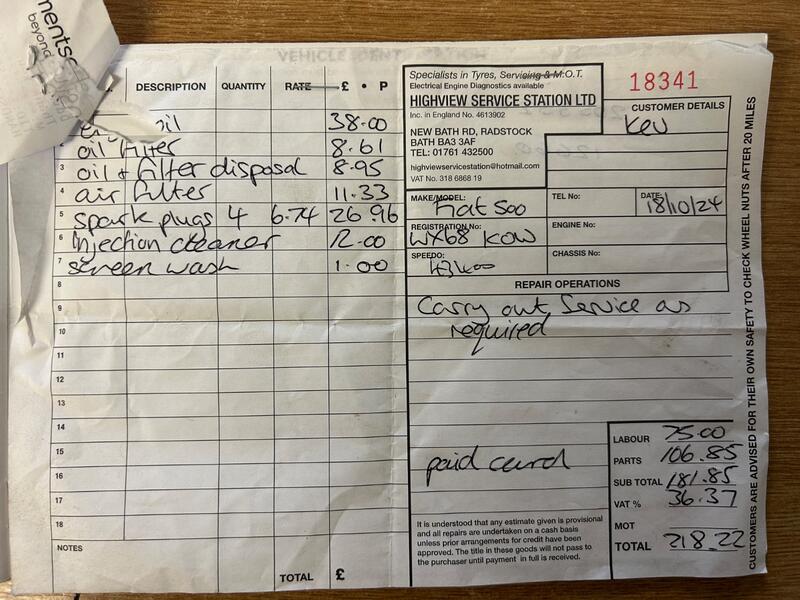 mentsc
beyond
VEHICLE IDENT
DESCRIPTION QUANTITY RATE £ • P
oil 38.00
2 oil filter 8.61
3 oil + filter disposal 8.95
4 air filter 11.33
5 spark plugs 4 6.74 26.96
6 injection cleaner 12.00
7 screen wash 1.00
8
9
10
11
12
13
14
15
16
17
18
NOTES
TOTAL £
Specialists in Tyres, Servicing & M.O.T.
Electrical Engine Diagnostics available
HIGHVIEW SERVICE STATION LTD
Inc. in England No. 4613902
NEW BATH RD, RADSTOCK
BATH BA3 3AF
TEL: 01761 432500
highviewservicestation@hotmail.com
VAT No. 318 6868 19
18341
CUSTOMER DETAILS
Kev
MAKE/MODEL: Fiat 500
TEL No:
DATE: 18/10/24
REGISTRATION No: WX68 KOW
ENGINE No:
SPEEDO:
CHASSIS No:
REPAIR OPERATIONS
Carry out Service as
required
paid card
It is understood that any estimate given is provisional
and all repairs are undertaken on a cash basis
unless prior arrangements for credit have been
approved. The title in these goods will not pass to
the purchaser until payment in full is received.
LABOUR 75.00
PARTS 106.85
SUB TOTAL 181.85
VAT % 36.37
MOT
TOTAL 218.22
CUSTOMERS ARE ADVISED FOR THEIR OWN SAFETY TO CHECK WHEEL NUTS AFTER 20 MILES